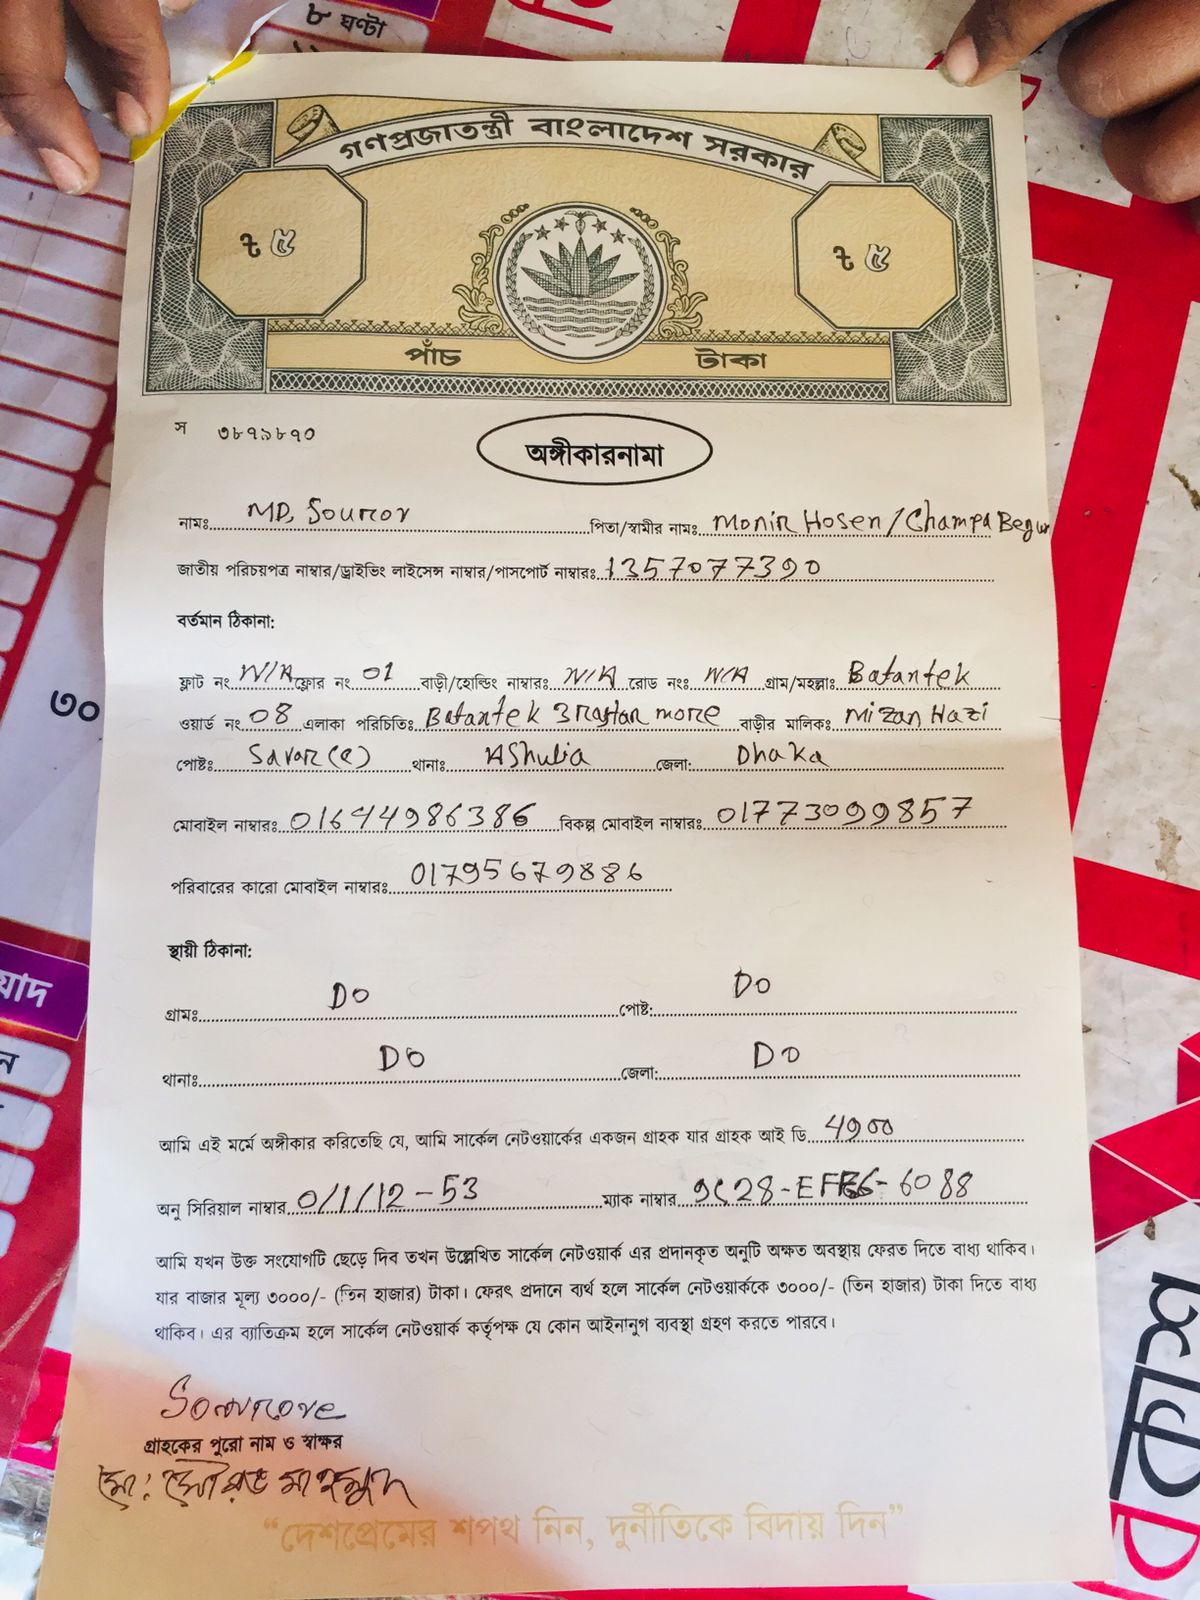 ৮ ঘণ্টা
গণপ্রজাতন্ত্রী বাংলাদেশ সরকার
৳ ৫ ৳ ৫
পাঁচ টাকা
স ৩৮৭৯৮৭০
অঙ্গীকারনামা
নামঃ MD, Sourov পিতা/স্বামীর নামঃ Monir Hosen/Champa Begum
জাতীয় পরিচয়পত্র নাম্বার/ড্রাইভিং লাইসেন্স নাম্বার/পাসপোর্ট নাম্বারঃ 1357077390
বর্তমান ঠিকানা:
ফ্লাট নং N/A ফ্লোর নং 01 বাড়ী/হোল্ডিং নাম্বারঃ N/A রোড নংঃ N/A গ্রাম/মহল্লাঃ Batantek
ওয়ার্ড নং 08 এলাকা পরিচিতিঃ Batantek 3 rastar more বাড়ীর মালিকঃ Mizan Hazi
পোষ্টঃ Savar (c) থানাঃ AShulia জেলা: Dhaka
মোবাইল নাম্বারঃ 01644986386 বিকল্প মোবাইল নাম্বারঃ 01773099857
পরিবারের কারো মোবাইল নাম্বারঃ 01795679886
৩০
স্থায়ী ঠিকানা:
গ্রামঃ DO পোষ্ট: DO
থানাঃ DO জেলা: DO
আমি এই মর্মে অঙ্গীকার করিতেছি যে, আমি সার্কেল নেটওয়ার্কের একজন গ্রাহক যার গ্রাহক আই ডি 4900
অনু সিরিয়াল নাম্বার 0/1/12-53 ম্যাক নাম্বার 9C28-EFE6-6088
আমি যখন উক্ত সংযোগটি ছেড়ে দিব তখন উল্লেখিত সার্কেল নেটওয়ার্ক এর প্রদানকৃত অনুটি অক্ষত অবস্থায় ফেরত দিতে বাধ্য থাকিব।
যার বাজার মূল্য ৩০০০/- (তিন হাজার) টাকা। ফেরৎ প্রদানে ব্যর্থ হলে সার্কেল নেটওয়ার্ককে ৩০০০/- (তিন হাজার) টাকা দিতে বাধ্য
থাকিব। এর ব্যাতিক্রম হলে সার্কেল নেটওয়ার্ক কর্তৃপক্ষ যে কোন আইনানুগ ব্যবস্থা গ্রহণ করতে পারবে।
Sourove
গ্রাহকের পুরো নাম ও স্বাক্ষর
মো: সৌরভ মাহমুদ
“দেশপ্রেমের শপথ নিন, দুর্নীতিকে বিদায় দিন”